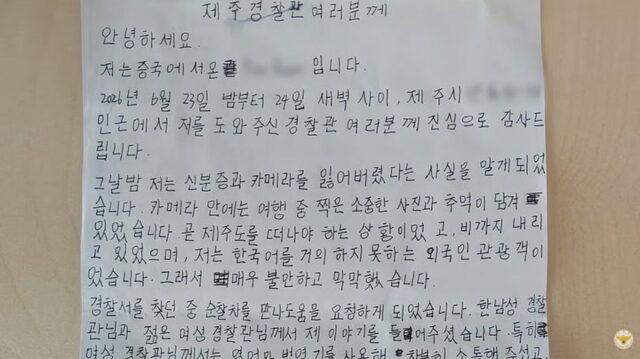 제주경찰관 여러분께
안녕하세요.
저는 중국에서 온 입니다.
2026년 6월 23일 밤부터 24일 새벽 사이, 제주시
인근에서 저를 도와주신 경찰관 여러분께 진심으로 감사드
립니다.
그날밤 저는 신분증과 카메라를 잃어버렸다는 사실을 알게되었
습니다. 카메라 안에는 여행 중 찍은 소중한 사진과 추억이 담겨
있었습니다. 곧 제주도를 떠나야 하는 상황이었고, 비까지 내리
고 있었으며, 저는 한국어를 거의 하지 못하는 외국인 관광객이
었습니다. 그래서 매우 불안하고 막막했습니다.
경찰서를 찾던 중 순찰차를 만나 도움을 요청하게 되었습니다. 한 남성 경찰
관님과 젊은 여성 경찰관님께서 제 이야기를 들어주셨습니다. 특히
여성 경찰관님께서는 영어와 번역기를 사용해 차분히 소통해 주셨고